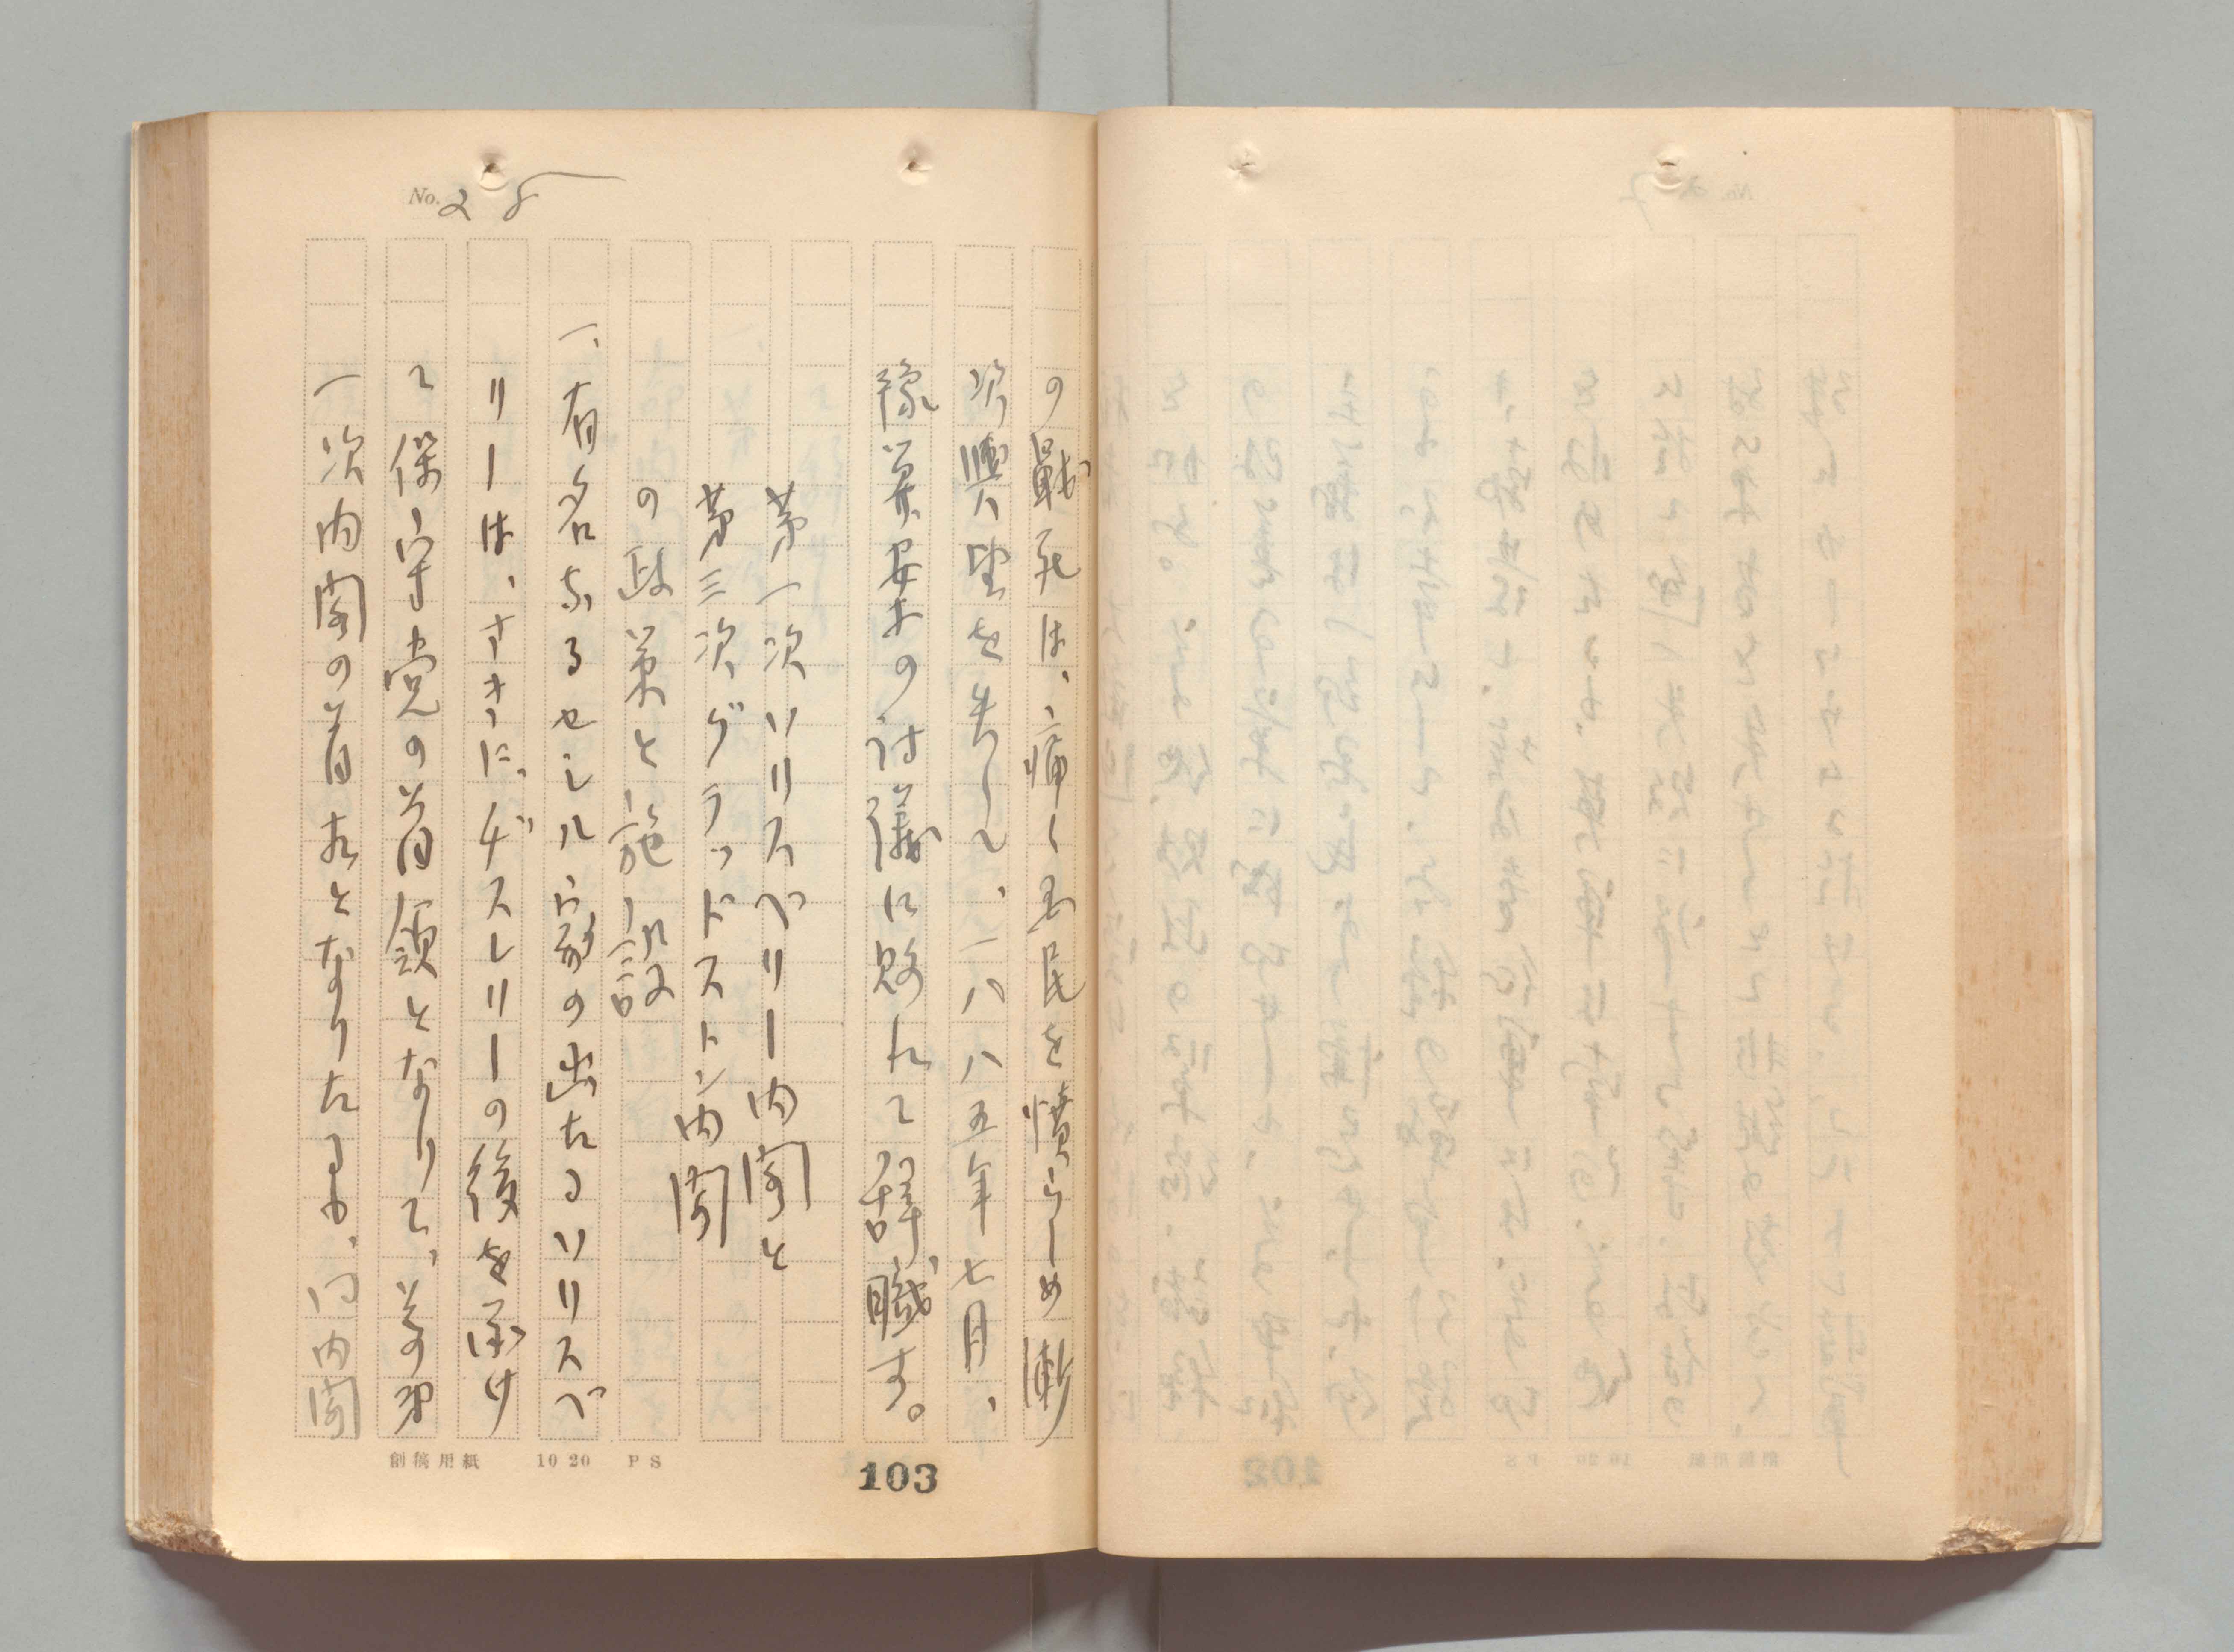 No. 28
の戰死は、痛く国民を憤らしめ漸
次輿望を失して、一八八五年七月、
豫算案の討議に敗れて辞職す。
第一次ソリスベリー内閣と
第三次グラッドストン内閣
の政策と施設
一、有名なるセシル家の出たるソリスベ
リーは、さきに、ヂスレリーの後を承け
て保守党の首領となりて、其の第
一次内閣の首相となりたるも、同内閣
創稿用紙 10 20 PS
103